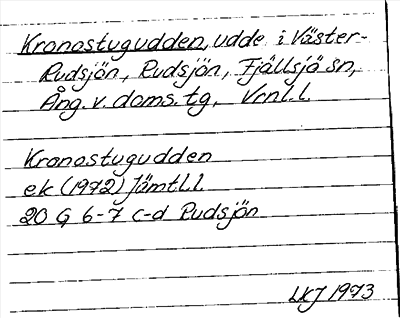 Kronostugudden, udde i Väster-
Rudsjön, Rudsjön, Fjällsjö sn,
Ång. v. doms. tg, Vrnl. l.
Kronostugudden
ek (1972) Jämtl.l
20 G 6-7 c-d Rudsjön
LKJ 1973